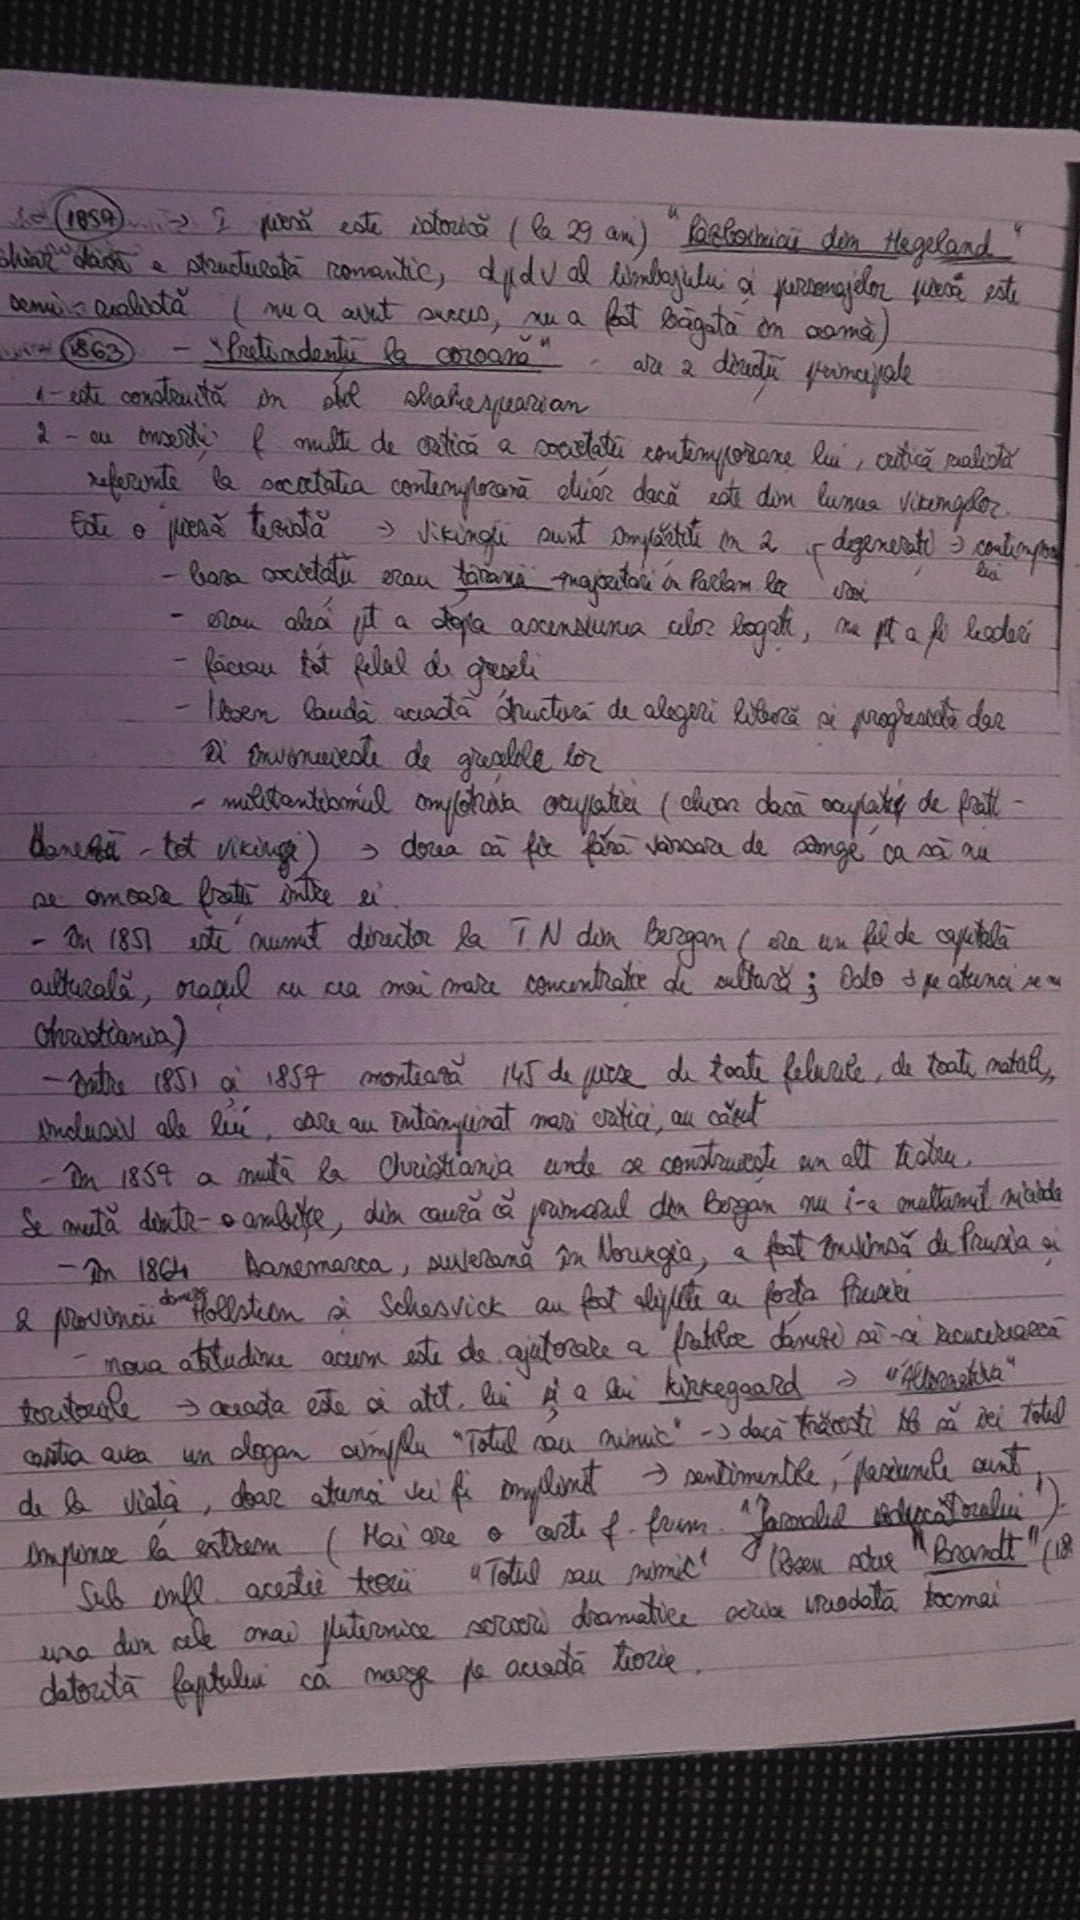 1857 → I piesă este istorică (la 29 ani) "Războinicii din Hegeland"
chiar dacă e structurată romantic, dpdv al limbajului și personajelor piesa este
semi-realistă (nu a avut succes, nu a fost băgată în seamă)
1863 - "Pretendenții la coroană" - are 2 direcții principale
1 - este construită în stil shakespearian
2 - cu inserții f multe de critică a societății contemporane lui, critică realistă
referințe la societatea contemporană chiar dacă este din lumea vikingilor.
Este o piesă teziată → vikingii sunt împărțiți în 2 degenerați → contempo
lui
- baza societății erau țăranii - majoritari în Parlam lor vroi
- erau aleși pt a stopa ascensiunea celor bogați, nu pt a fi lideri
- făceau tot felul de greșeli
- Ibsen laudă această structură de alegeri liberă și progresistă dar
îi învinuiește de greșelile lor
- militantismul împotriva ocupației (chiar dacă ocupați de frați -
danezii - tot vikingi) → dorea să fie fără vărsare de sânge ca să nu
se omoare frații între ei.
- În 1851 este numit director la TN din Bergan (era un fel de capitală
culturală, orașul cu cea mai mare concentrație de cultură; Oslo → pe atunci se n
Christiania)
- Între 1851 și 1857 montează 145 de piese de toate felurile, de toate
inclusiv ale lui, care au întâmpinat mari critici, au căzut
- În 1857 a mută la Christiania unde se construiește un alt teatru.
Se mută dintr-o ambiție, din cauză că primarul din Bergan nu i-a mulțumit niciodă
- În 1864 Danemarca, suverană în Norvegia, a fost învinsă de Prusia și
2 provincii daneze Hollstein și Schesvick au fost alipite cu forța Prusiei
- noua atitudine acum este de ajutorare a fraților danezi să-și recucerească
teritoriile → aceasta este și atit. lui și a lui Kirkegaard → "Alternativa"
cartia avea un slogan simplu "Totul sau nimic" → dacă trăiești tb să iei totul
de la viață, doar atunci vei fi împlinit → sentimentele, pasiunile sunt
împinse la extrem (Mai are o carte f. frum. "Jurnalul seducătorului")
Sub infl. acestei teorii "Totul sau nimic" Ibsen scrie "Brandt" (18
una din cele mai puternice scrieri dramatice scrise vreodată tocmai
datorită faptului că merge pe această teorie.